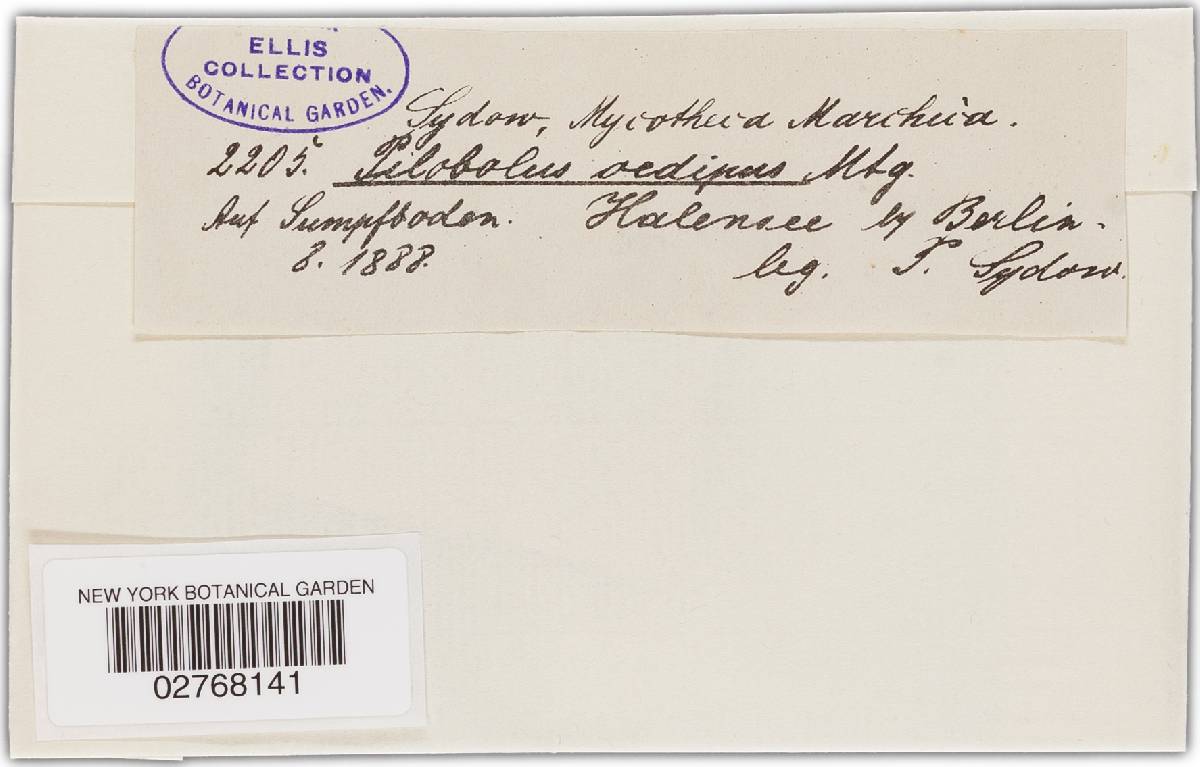 ELLIS
COLLECTION
BOTANICAL GARDEN.
Sydow, Mycotheca Marchica.
2205. Pilobolus oedipus Mtg.
Auf Sumpfboden. Halensee by Berlin.
8. 1888. leg. P. Sydow.
NEW YORK BOTANICAL GARDEN
02768141